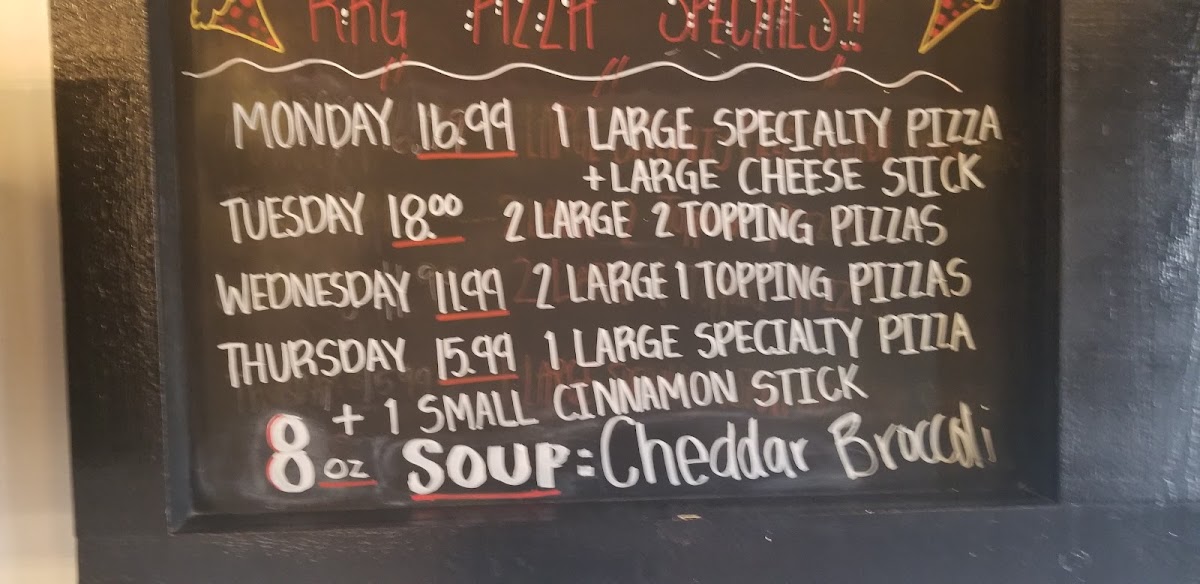 RRG PIZZA SPECIALS!!
MONDAY 16.99 1 LARGE SPECIALTY PIZZA
+ LARGE CHEESE STICK
TUESDAY 18.00 2 LARGE 2 TOPPING PIZZAS
WEDNESDAY 11.99 2 LARGE 1 TOPPING PIZZAS
THURSDAY 15.99 1 LARGE SPECIALTY PIZZA
+ 1 SMALL CINNAMON STICK
8 oz SOUP: Cheddar Broccoli